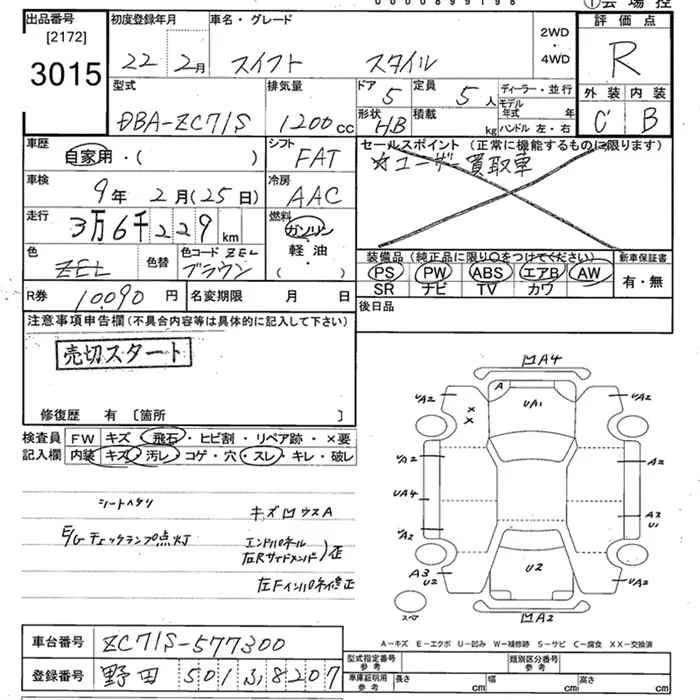 ①会場控
出品番号
[2172]
3015
初度登録年月
22 2月
車名・グレード
スイフト スタイル
2WD
・
4WD
評価点
R
外装 内装
C B
型式
DBA-ZC71S
排気量
1200cc
ドア 5
定員 5人
形状 HB
積載 kg
ディーラー・並行
モデル年式 年
ハンドル 左・右
車歴
自家用・( )
シフト
FAT
セールスポイント (正常に機能するものに限ります)
☆ユーザー買取車
車検
9年 2月(25日)
冷房
AAC
走行
3万6千229km
燃料
ガソリン
軽・油
( ・ )
色
ZEL
色替
色コード ZEL
ブラウン
装備品 (純正品に限り○をつけてください)
PS PW ABS エアB AW
SR ナビ TV カワ
新車保証書
有・無
R券 10090円
名変期限 月 日
後日品
注意事項申告欄 (不具合内容等は具体的に記入して下さい)
売切スタート
修復歴 有 〔箇所 〕
検査員記入欄
FW キズ・飛石・ヒビ割・リペア跡・×要
内装 キズ・汚レ・コゲ・穴・スレ・キレ・破レ
シートヘタリ
キズ凹ウスA
E/Gチェックランプ点灯
エンドパネル
右Rサイドメンバー 正
左Fインパネ修正
凹A4
A
UA1
UA2
UA2
× ×
UA2
A2
UA4
A3
U1
UA2
UA2
A3
U2
U2
スペア
凹A2
A-キズ E-エクボ U-凹み W-補修跡 S-サビ C-腐食 XX-交換済
車台番号
ZC71S-577300
登録番号
野田 501 ふ 8207
型式指定番号 参考
類別区分番号 参考
車庫証明用 参考
長さ cm
幅 cm
高さ cm